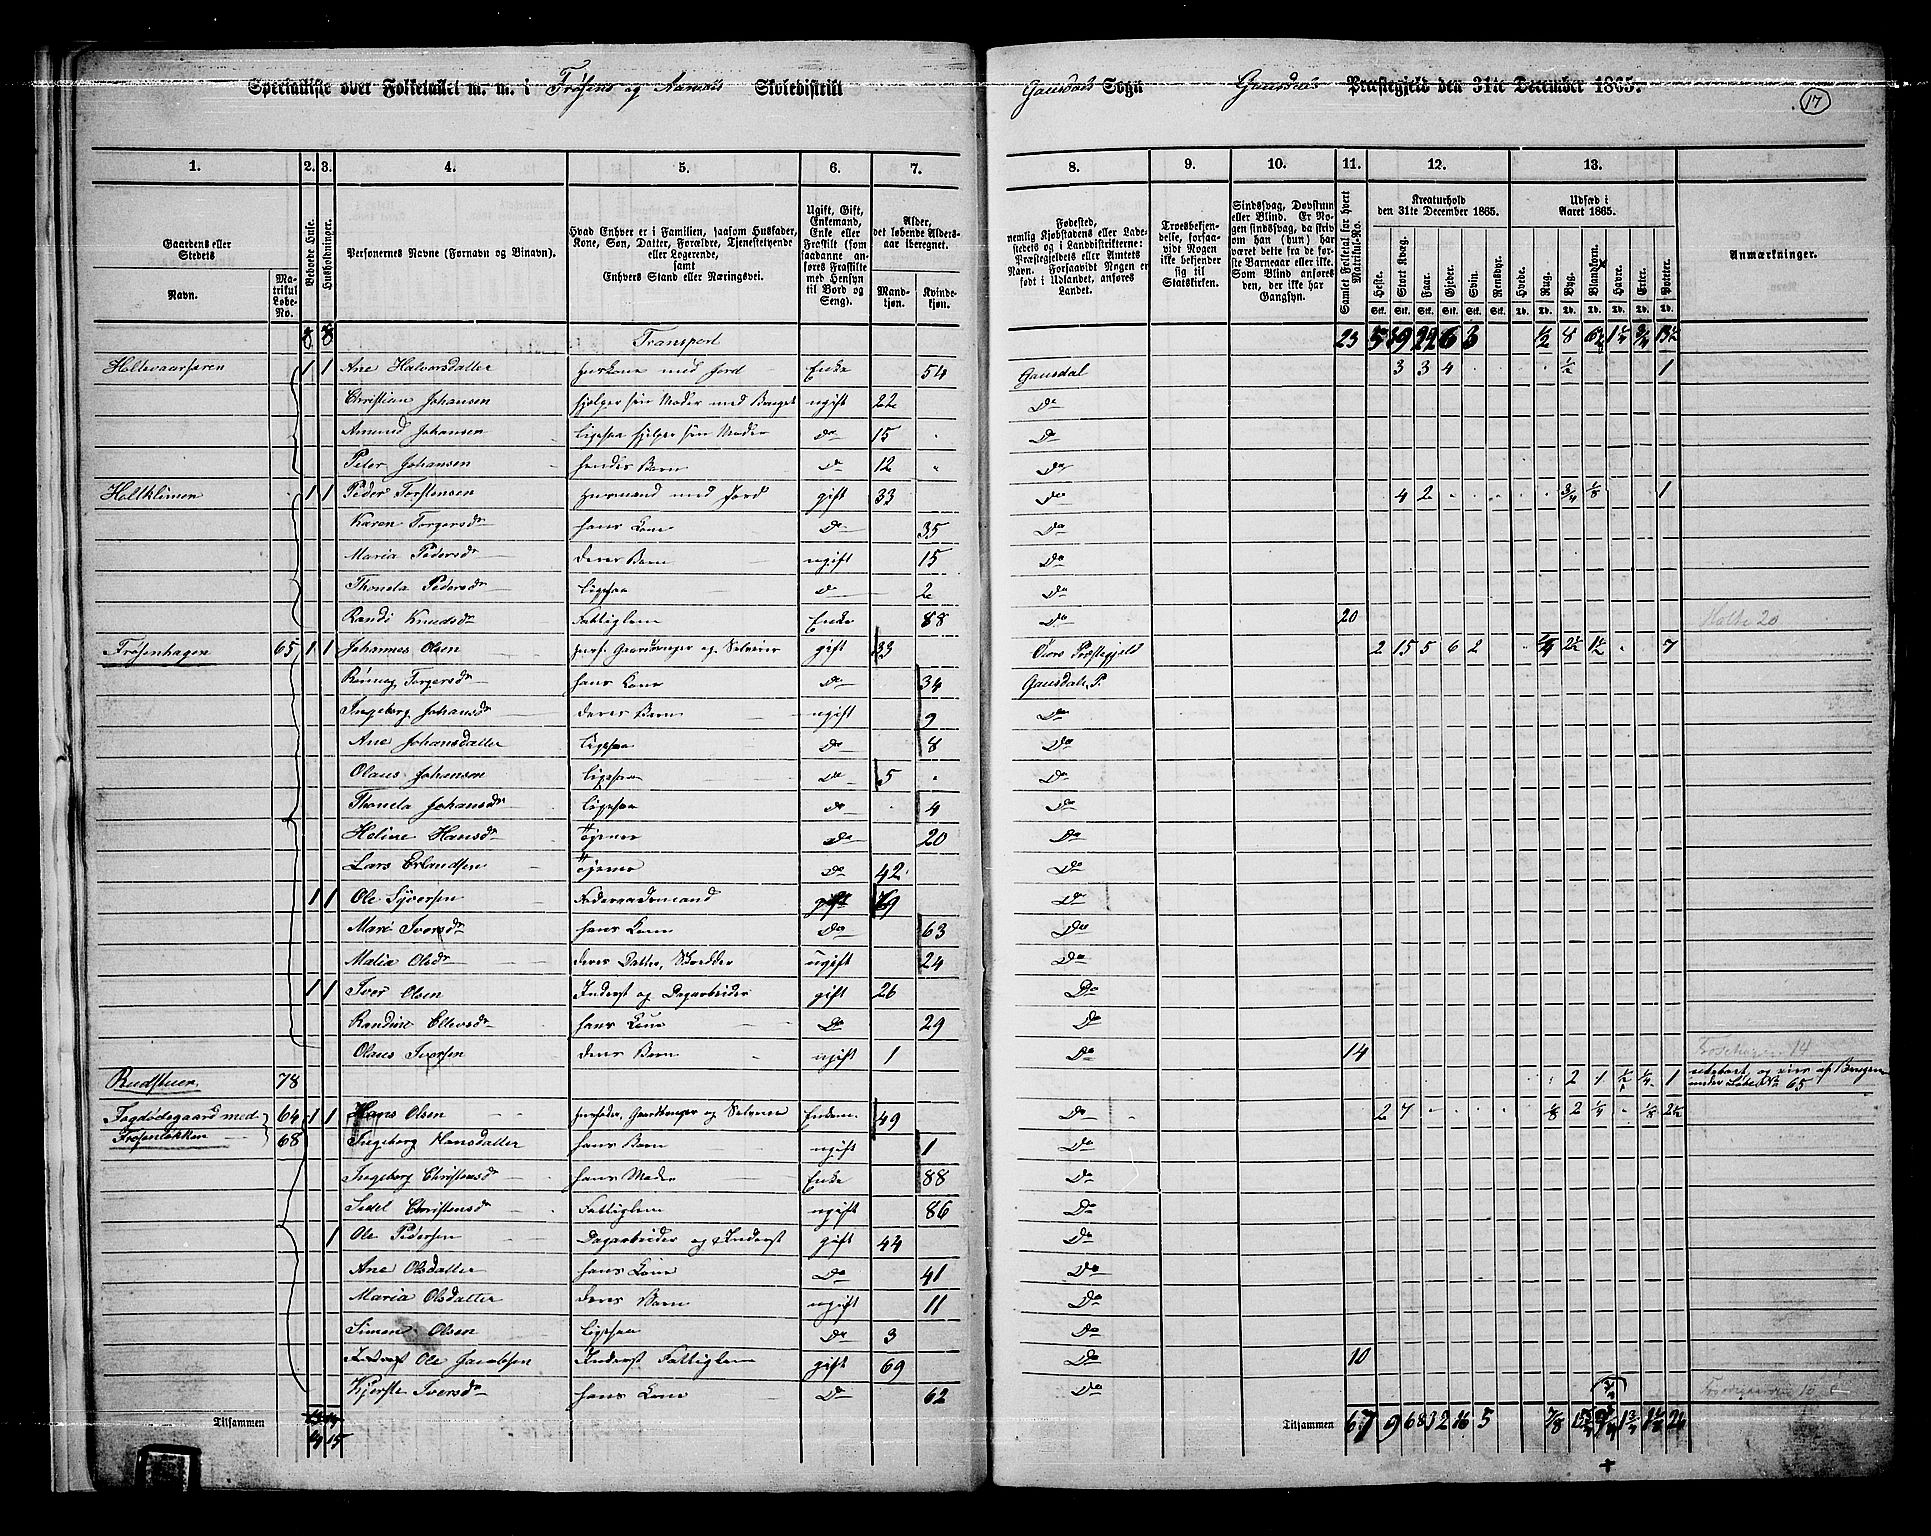 Specialliste over Folketallet m. m. i Frøsens og Aarnæs Skoledistrikt
Gausdals Sogn Gausdals Præstegjeld den 31te December 1865.
17
1. 2. 3. 4. 5. 6. 7.
Gaardens eller Stedets
Navn.
Matrikul Løbe-No.
Beboede Huse.
Husholdninger.
Personernes Navne (Fornavn og Binavn).
Hvad Enhver er i Familien, saasom Husfader, Kone, Søn, Datter, Forældre, Tjenestetyende eller Logerende, samt Enhvers Stand eller Næringsvei.
Ugift, Gift, Enkemand, Enke eller Fraskilt (som saadanne anføres Fraskilte med Hensyn til Bord og Seng).
Alder, det løbende Aldersaar iberegnet.
Mandkjøn. Kvindekjøn.
8. 9. 10. 11. 12. 13.
Fødested, nemlig Kjøbstadens eller Ladestedets og i Landdistrikterne: Præstegjeldets eller Amtets Navn. Forsaavidt Nogen er født i Udlandet, anføres Landet.
Troesbekjendelse, forsaavidt Nogen ikke bekjender sig til Statskirken.
Sindssvag, Døvstum eller Blind. Er Nogen sindssvag, da skriv om han (hun) har været dette fra de første Barneaar eller ikke. Som Blind anføres der, der ikke har Gangsyn.
Samlet Folketal for hvert Matrikul-No.
Kreaturhold den 31te December 1865.
Heste. Stort Kvæg. Faar. Gjeder. Svin. Rensdyr.
Udsæd i Aaret 1865.
Hvede. Rug. Byg. Blandkorn. Havre. Erter. Poteter.
Anmærkninger.
8 8 Transport 23 5 39 22 6 3 1/2 8
Holtevaarsæren 1 1 Ane Halvorsdatter Huskone med Jord Enke 54 Gausdal 3 3 4 1/2 1
Christian Johansen hjelper sin Moder med Bruget ugift 22 Do
Amund Johansen Ligesaa hjelper sin Moder Do 15 Do
Peter Johansen hendes Barn Do 12 Do
Holtklimen 1 1 Peder Torstensen Huusmand med Jord gift 33 Do 4 2 3/4 1/8 1
Karen Torgersdr hans Kone Do 35 Do
Maria Pedersdr deres Barn ugift 15 Do
Thonela Pedersdr Ligesaa Do 2 Do
Randi Knudsdr Fattiglem Enke 88 Do 20 Holte 20
Frøsenhagen 65 1 1 Johannes Olsen Husf. Gaardbruger og Selveier gift 33 Øiers Præstegjeld 2 15 5 6 2 1/4 2 1/2 1 1/2 7
Rønnaug Torgersdr hans Kone Do 34 Gausdals P.
Ingeborg Johansdr deres Barn ugift 9 Do
Ane Johansdatter Ligesaa Do 8 Do
Olaus Johansen Ligesaa Do 5 Do
Thonela Johansdr Ligesaa Do 4 Do
Heline Hansdr Tjener Do 20 Do
Lars Erlandsen Tjener Do 42 Do
1 1 Ole Syversen Føderaadsmand gift 69 Do
Mari Iversdr hans Kone Do 63 Do
Malia Olsdr deres Datter, Skrædder ugift 24 Do
1 1 Iver Olsen Inderst og Dagarbeider gift 26 Do
Randine Ellevsdr hans Kone Do 29 Do
Olaus Iversen deres Barn ugift 1 Do 14 14
Rudstuen 78 2 1 1/2 1/4 1 ubebygt, og eies af Brugeren under Løbe No 65
Fagdødegaard med 64 1 1 Hans Olsen Husfader, Gaardbruger og Selveier Enkem. 49 Do 2 7 1/8 2 1/4 1/8 2 1/2
Frøsenløkken 68 Ingeborg Hansdatter hans Barn ugift 1 Do
Ingeborg Christensd hans Moder Enke 88 Do
Sidel Christensdr Fattiglem ugift 86 Do
1 Ole Pedersen Dagarbeider og Inderst gift 44 Do
Ane Olsdatter hans Kone Do 41 Do
Maria Olsdatter deres Barn ugift 11 Do
Simen Olsen Ligesaa Do 3 Do
Inderst Ole Jacobsen Inderst Fattiglem gift 69 Do 10
Kjersti Iversdr hans Kone Do 62 Do 10
Tilsammen 13 14
14 15
Tilsammen 67 9 68 32 16 5 7/8